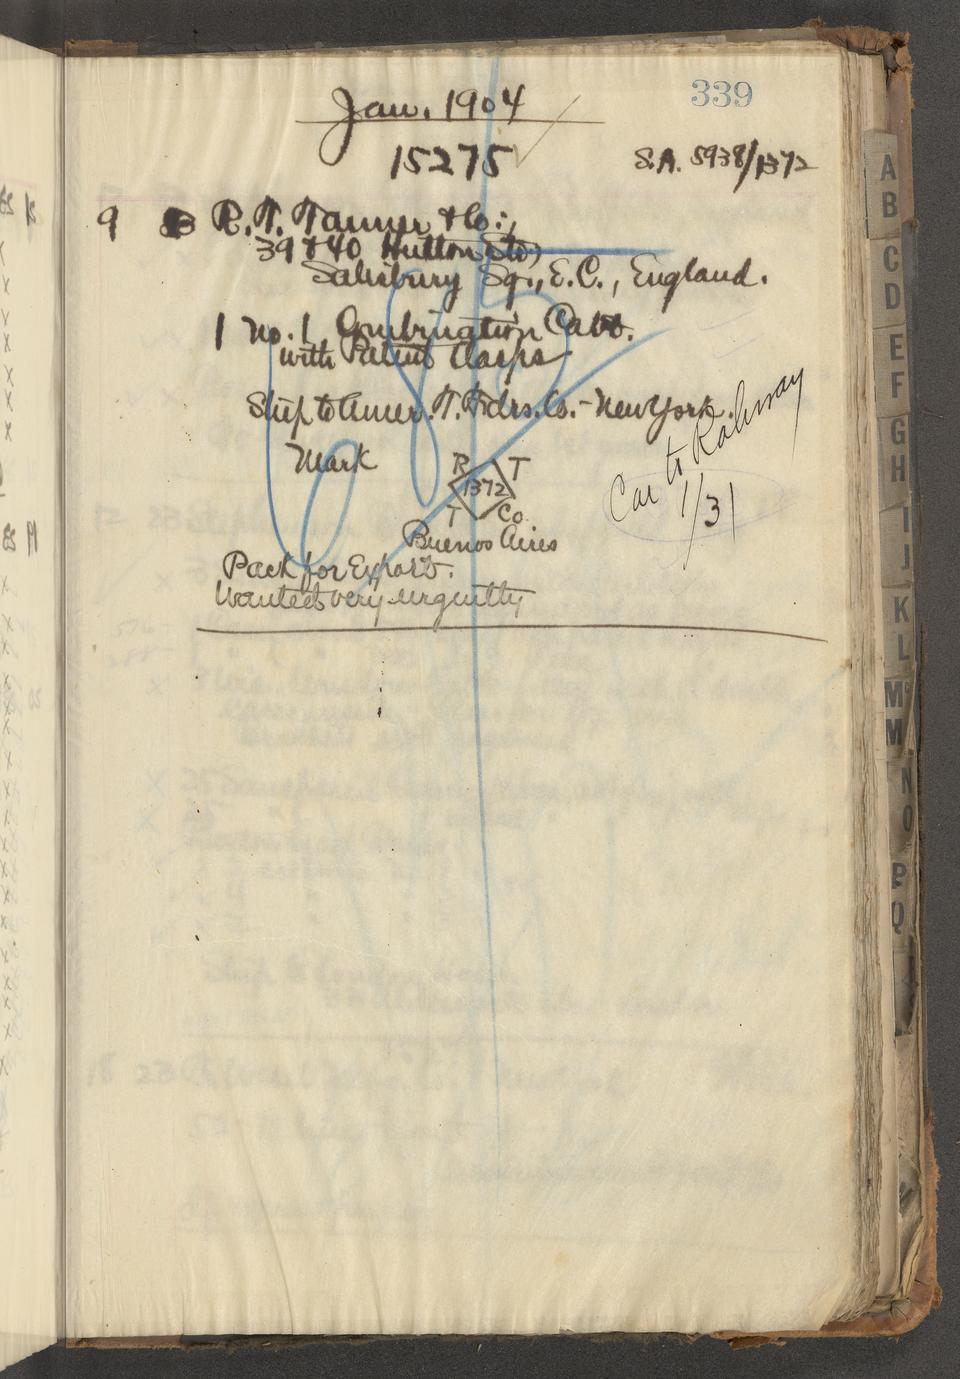 339
Jan. 1904
15275
S.A. 5938/1372
9 R. T. Tanner & Co.,
39 & 40 Hutton St.,
Salisbury Sq., E.C., England.
1 No. 1 Combination Cabt.
with Patent Clasps
Ship to Amer. T. Fdrs. Co. - New York.
Car to Rahway
1/31
Mark
R T
1372
T Co.
Buenos Aires
Pack for Export.
Wanted very urgently
A
B
C
D
E
F
G
H
I
J
K
L
Mc
M
N
O
P
Q